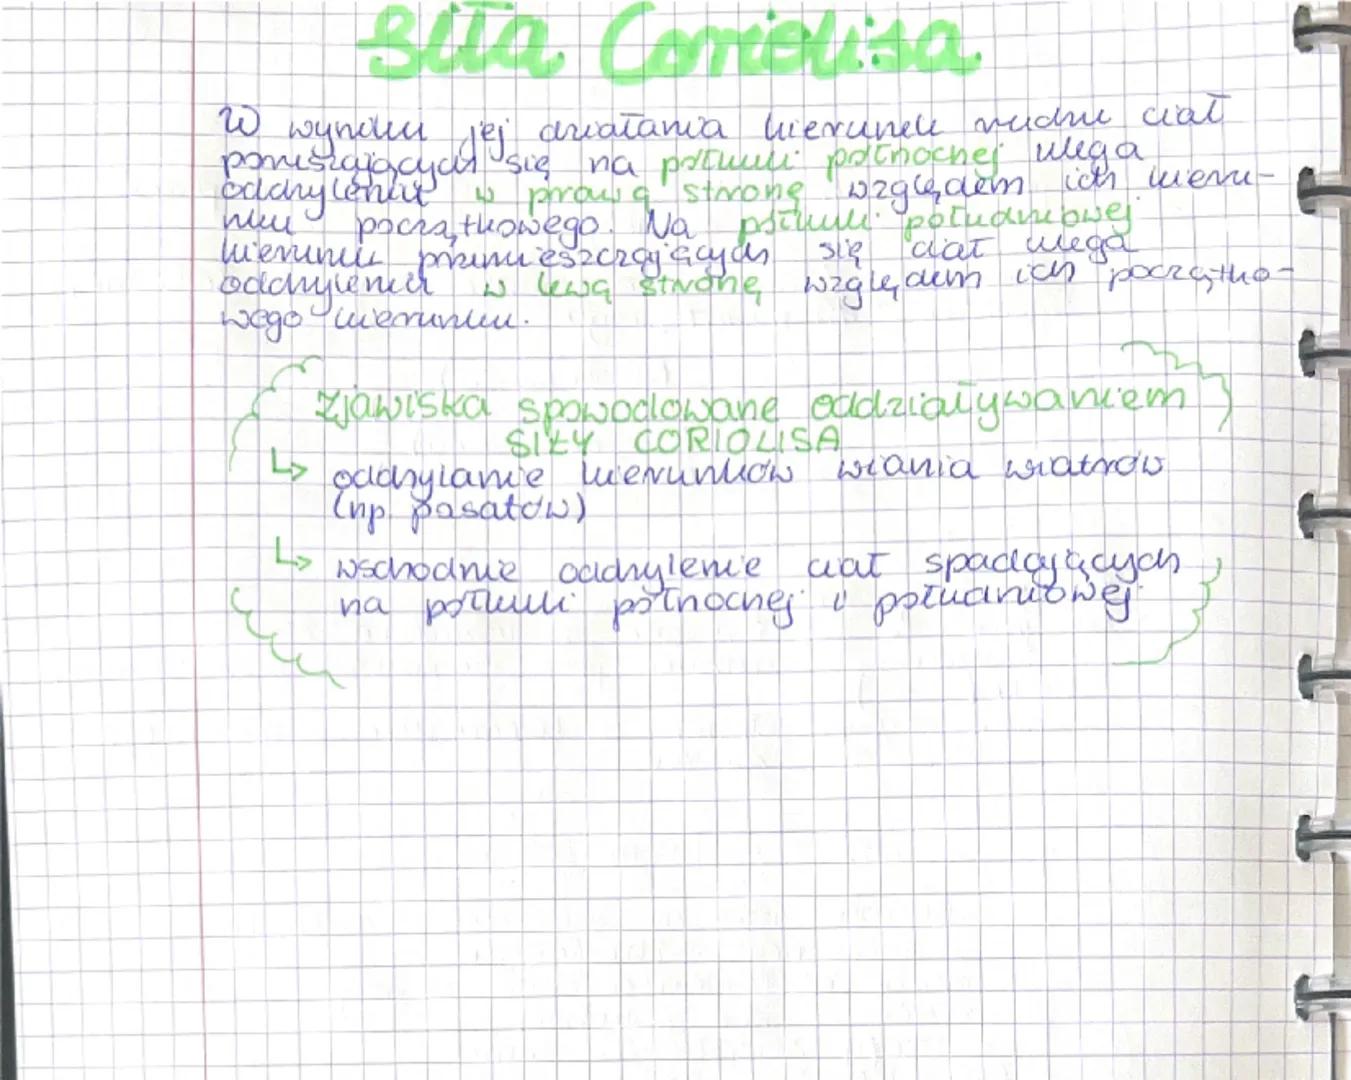 Siła Coriolisa
W wyniku jej działania kierunek ruchu ciał
poruszających się na półkuli północnej ulega
odchyleniu w prawą stronę względem ich kieru-
nku początkowego. Na półkuli południowej
kierunek przemieszczających się ciał ulega
odchyleniu w lewą stronę względem ich początko-
wego kierunku.
Zjawiska spowodowane oddziaływaniem
SIŁY CORIOLISA
↳ odchylanie kierunków wiania wiatrów
(np. pasatów)
↳ wschodnie odchylenie ciał spadających
na półkuli północnej i południowej